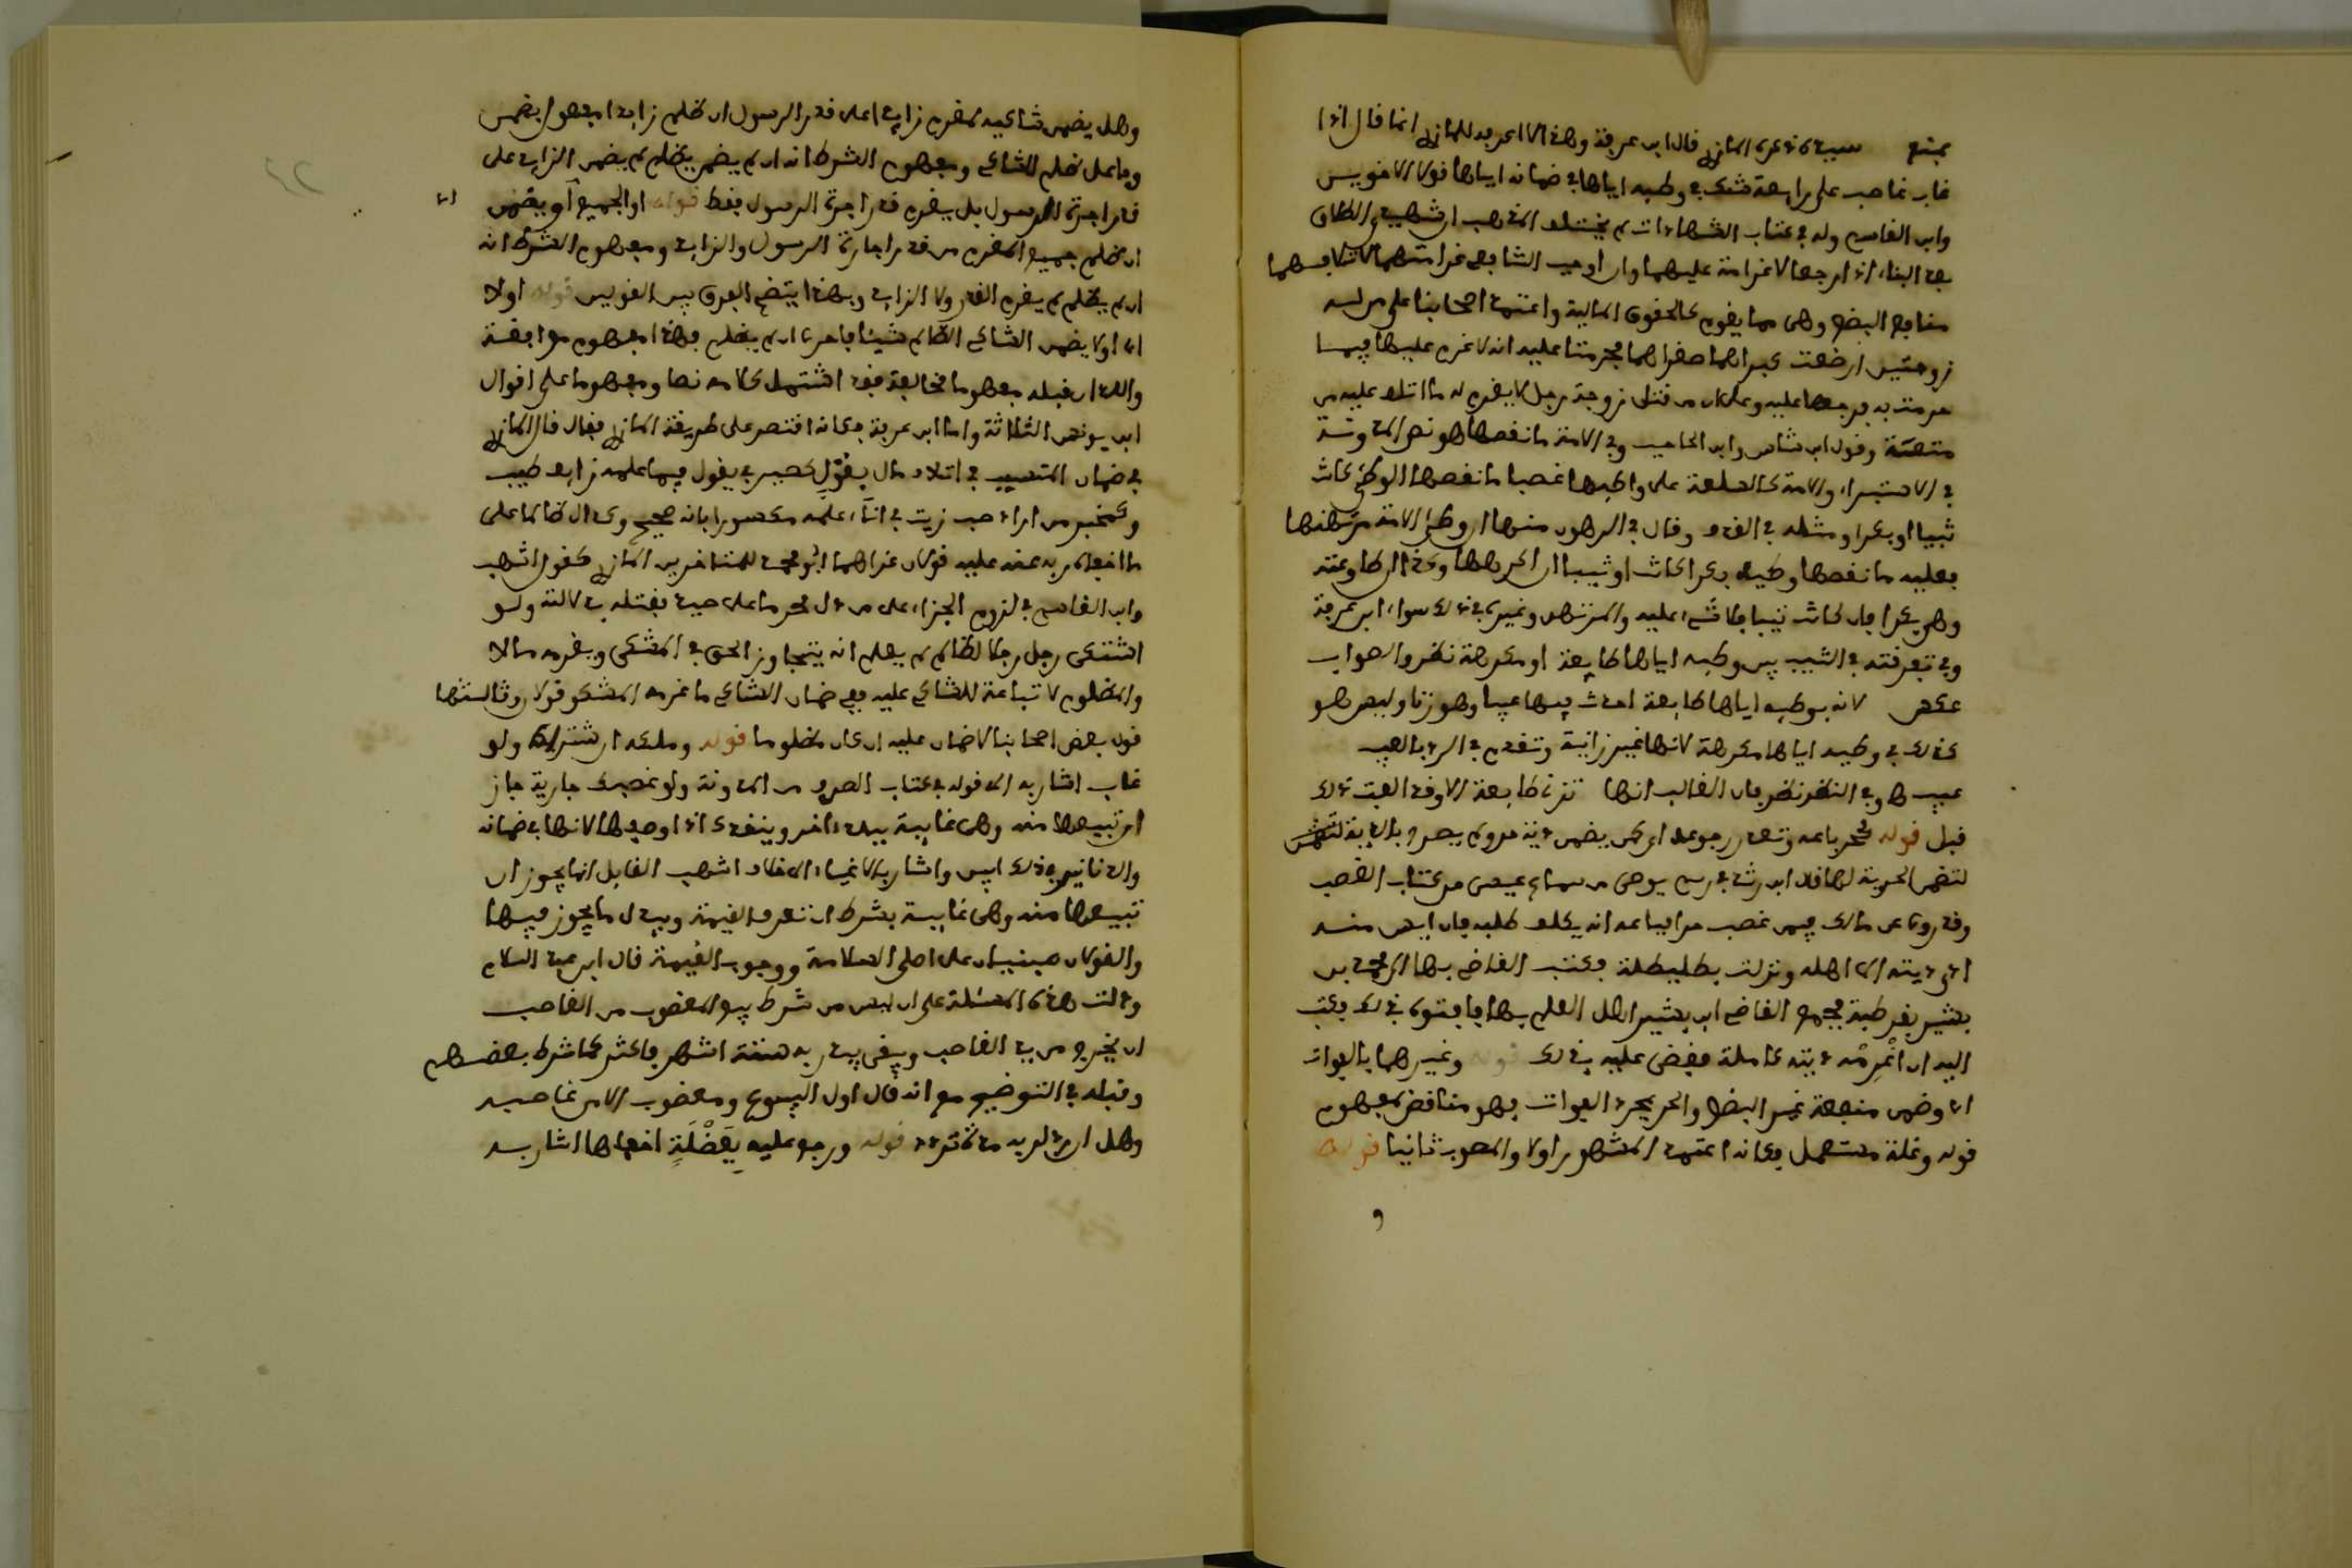 سيدي كذا عزى المازري قال ابن عرفة وهذا لا اعرفه للمازري انما قال اذا
غاب غاصب على رابعة شك في وطئه اياها في ضمانه اياها قولا الاخوين
وابن القاسم وله في كتاب الشهادات لم يختلف المذهب ان شهيدي الطلاق
بعد البناء اذا رجعا لا غرامة عليهما وان اوجب الشافعي غرامتهما لاتلافهما
منافع البضع وهي مما يقوم كالحقوق المالية واعتمد اصحابنا على من له
زوجتين ارضعت كبراهما صغراهما فحرمتا عليه انه لا غرم عليها فيما
حرمته به فرجعها عليه وعلى ان من قتل زوجة رجل لا يغرم له ما اتلف عليه من
متعته وقول ابن شاس وابن الحاجب وفي الامة ما نقصها هو نص المدونة
في الاستبراء والامة كالسلعة على واطيها غصبا ما نقصها الوطئ كانت
ثيبا او بكرا ومثله في القذف وقال في الرهون منها ان وطئ الامة مرتهنها
فعليه ما نقصها وطيه بكرا كانت او ثيبا ان اكرهها وكذا ان طاوعته
وهي بكر فان كانت ثيبا فلا شيء عليه والمرتهن وغيره في ذلك سواء ابن عرفة
وفي تفرقته في الثيب بين وطيه اياها طايعة او مكرهة نظر والصواب
عكس لانه بوطيه اياها طايعة احدث فيها عيبا وهو زنا وليس هو
كذلك في وطيه اياها مكرهة لانها غير زانية وتقدم في الرد بالعيب
عيب ها وفي النظر نظر فان الغالب انها لا تزنى طايعة الا وقد الفت ذلك
قبل قوله كحر باعه وتعذر رجوعه اي كمن يضمن دية حر ولم يصرح بالدية
لتضمن الحرية لها قال ابن رشد في رسم يوصي من سماع عيسى من كتاب الغصب
وقد روي عن مالك فيمن غصب حرا فباعه انه يكلف طلبه فان ايس منه
ادى ديته الى اهله ونزلت بطليطلة فكتب القاضي بها الى محمد بن
بشير بقرطبة فجمع القاضي ابن بشير اهل العلم بها فافتوه في ذلك فكتب
اليه ان اغرمه ديته كاملة فقضى عليه بذلك قوله وغيرهما بالفوات
اي وضمن منفعة غير البضع والحر بمجرد الفوات فهو مناقض لمفهوم
قوله وغلة مستعمل فكانه اعتمد المشهور اولا والمصوب ثانيا قوله
وهل يضمن شاكيه لمغرم زايدا على قدر الرسول ان ظلم زايدا مفعول يضمن
وفاعل ظلم للشاكي ومفهوم الشرط انه ان لم يظلم لم يضمن الزايد على
قدر اجرة الرسول بل يغرم قدر اجرة الرسول فقط قوله او الجميع أو يضمن
ان ظلم جميع المغرم من قدر اجارة الرسول والزايد ومفهوم الشرط انه
ان لم يظلم لم يغرم القدر ولا الزايد وبهذا يتضح الفرق بين القولين قوله اولا
اي اولا يضمن الشاكي الظالم شيئا فاحرى ان لم يظلم فهذا مفهوم موافقة
والذان قبله مفهوما مخالفة فقد اشتمل كلامه نصا ومفهوما على اقوال
ابن يونس الثلاثة واما ابن عرفة فكانه اقتصر على طريقة المازري فقال قال المازري
في ضمان المتسبب في اتلاف مال بقول كصيرفي يقول فيما علمه زايفا طيب
وكمخبر من اراد صب زيت في اناء علمه مكسورا بانه صحيح وكدال ظالما على
ما اخفاه ربه عنه عليه قولان عزاهما ابو محمد للمتاخرين المازري كقول اشهب
وابن القاسم في لزوم الجزاء على من دل محرما على صيد فقتله في دلالته ولو
اشتكى رجل رجلا لظالم لم يعلم انه يتجاوز الحق في المشكى ويغرمه مالا
والمظلوم لا تباعة للشاكي عليه ففي ضمان الشاكي ما غرمه المشكو قولان وثالثها
قول بعض اصحابنا لا ضمان عليه ان كان مظلوما قوله وملكه ان اشتراه ولو
غاب اشار به الى قوله في كتاب الصرف من المدونة ولو غصبك جارية جاز
ان تبيعها منه وهي غايبة ببلد ءاخر وينقدك اذا وصفها لانها في ضمانه
والدنانير في ذلك ابين واشار بالاغياء الى خلاف اشهب القايل انما يجوز ان
تبيعها منه وهي غايبة بشرط ان تعرف القيمة ويبذل ما يجوز فيها
والقولان مبنيان على اصلي السلامة ووجوب القيمة قال ابن عبد السلام
ودلت هذه المسئلة على ان ليس من شرط بيع المغصوب من الغاصب
ان يخرج من يد الغاصب ويبقى بيد ربه ستة اشهر فاكثر كما شرط بعضهم
وقبله في التوضيح مع انه قال اول البيوع ومغصوب الا من غاصبه
وهل ان رد لربه مدة تردد قوله ورجع عليه بفضلة اخفاها اشار به